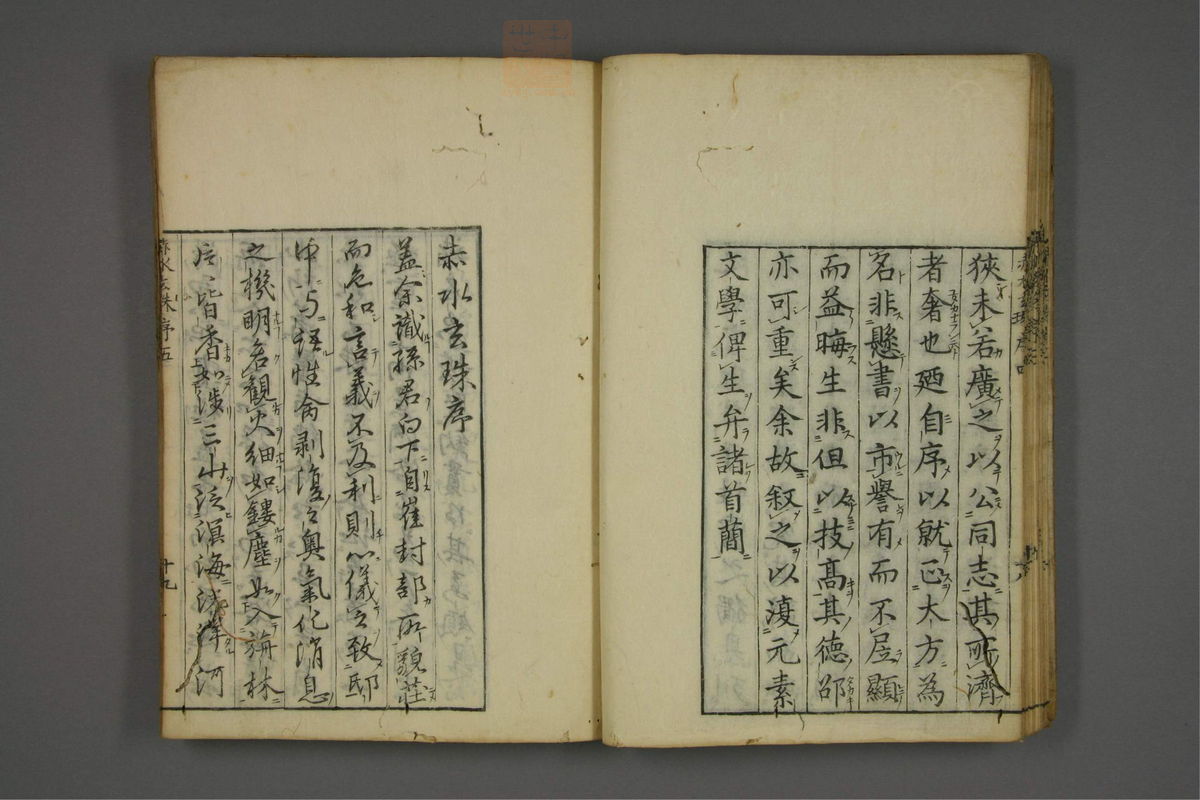 狹未若廣之以公同志其所濟
者奢也廼自序以就正大方為
名非懸書以市譽有而不居顯
而益晦生非但以技高其德邵
亦可重矣余故叙之以復元素
文學俾生弁諸首蕳
赤水玄珠序
盖余識孫君白下自崔封部所貌莊
而色和言義不及利則心儀之致邸
中与語性命剥復之奧氣化消息
之機明若觀火細如鏤塵如入旃林
皆香如涉三山泛溟海
河
赤水玄珠序五